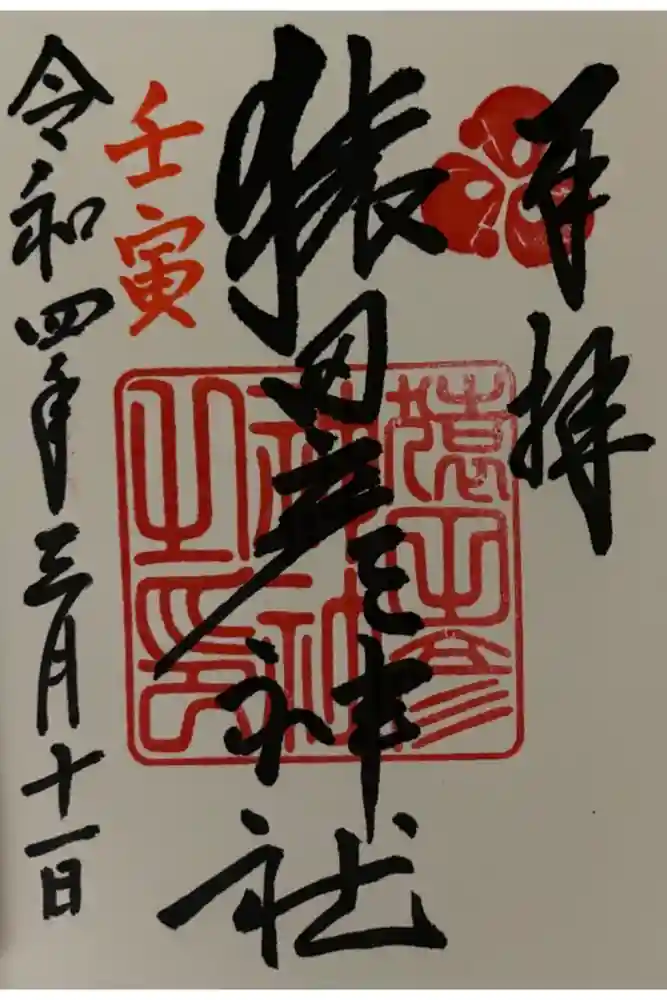 奉拝
猿田彦神社
壬寅
令和四年三月十一日
猿田彦
神社
之印